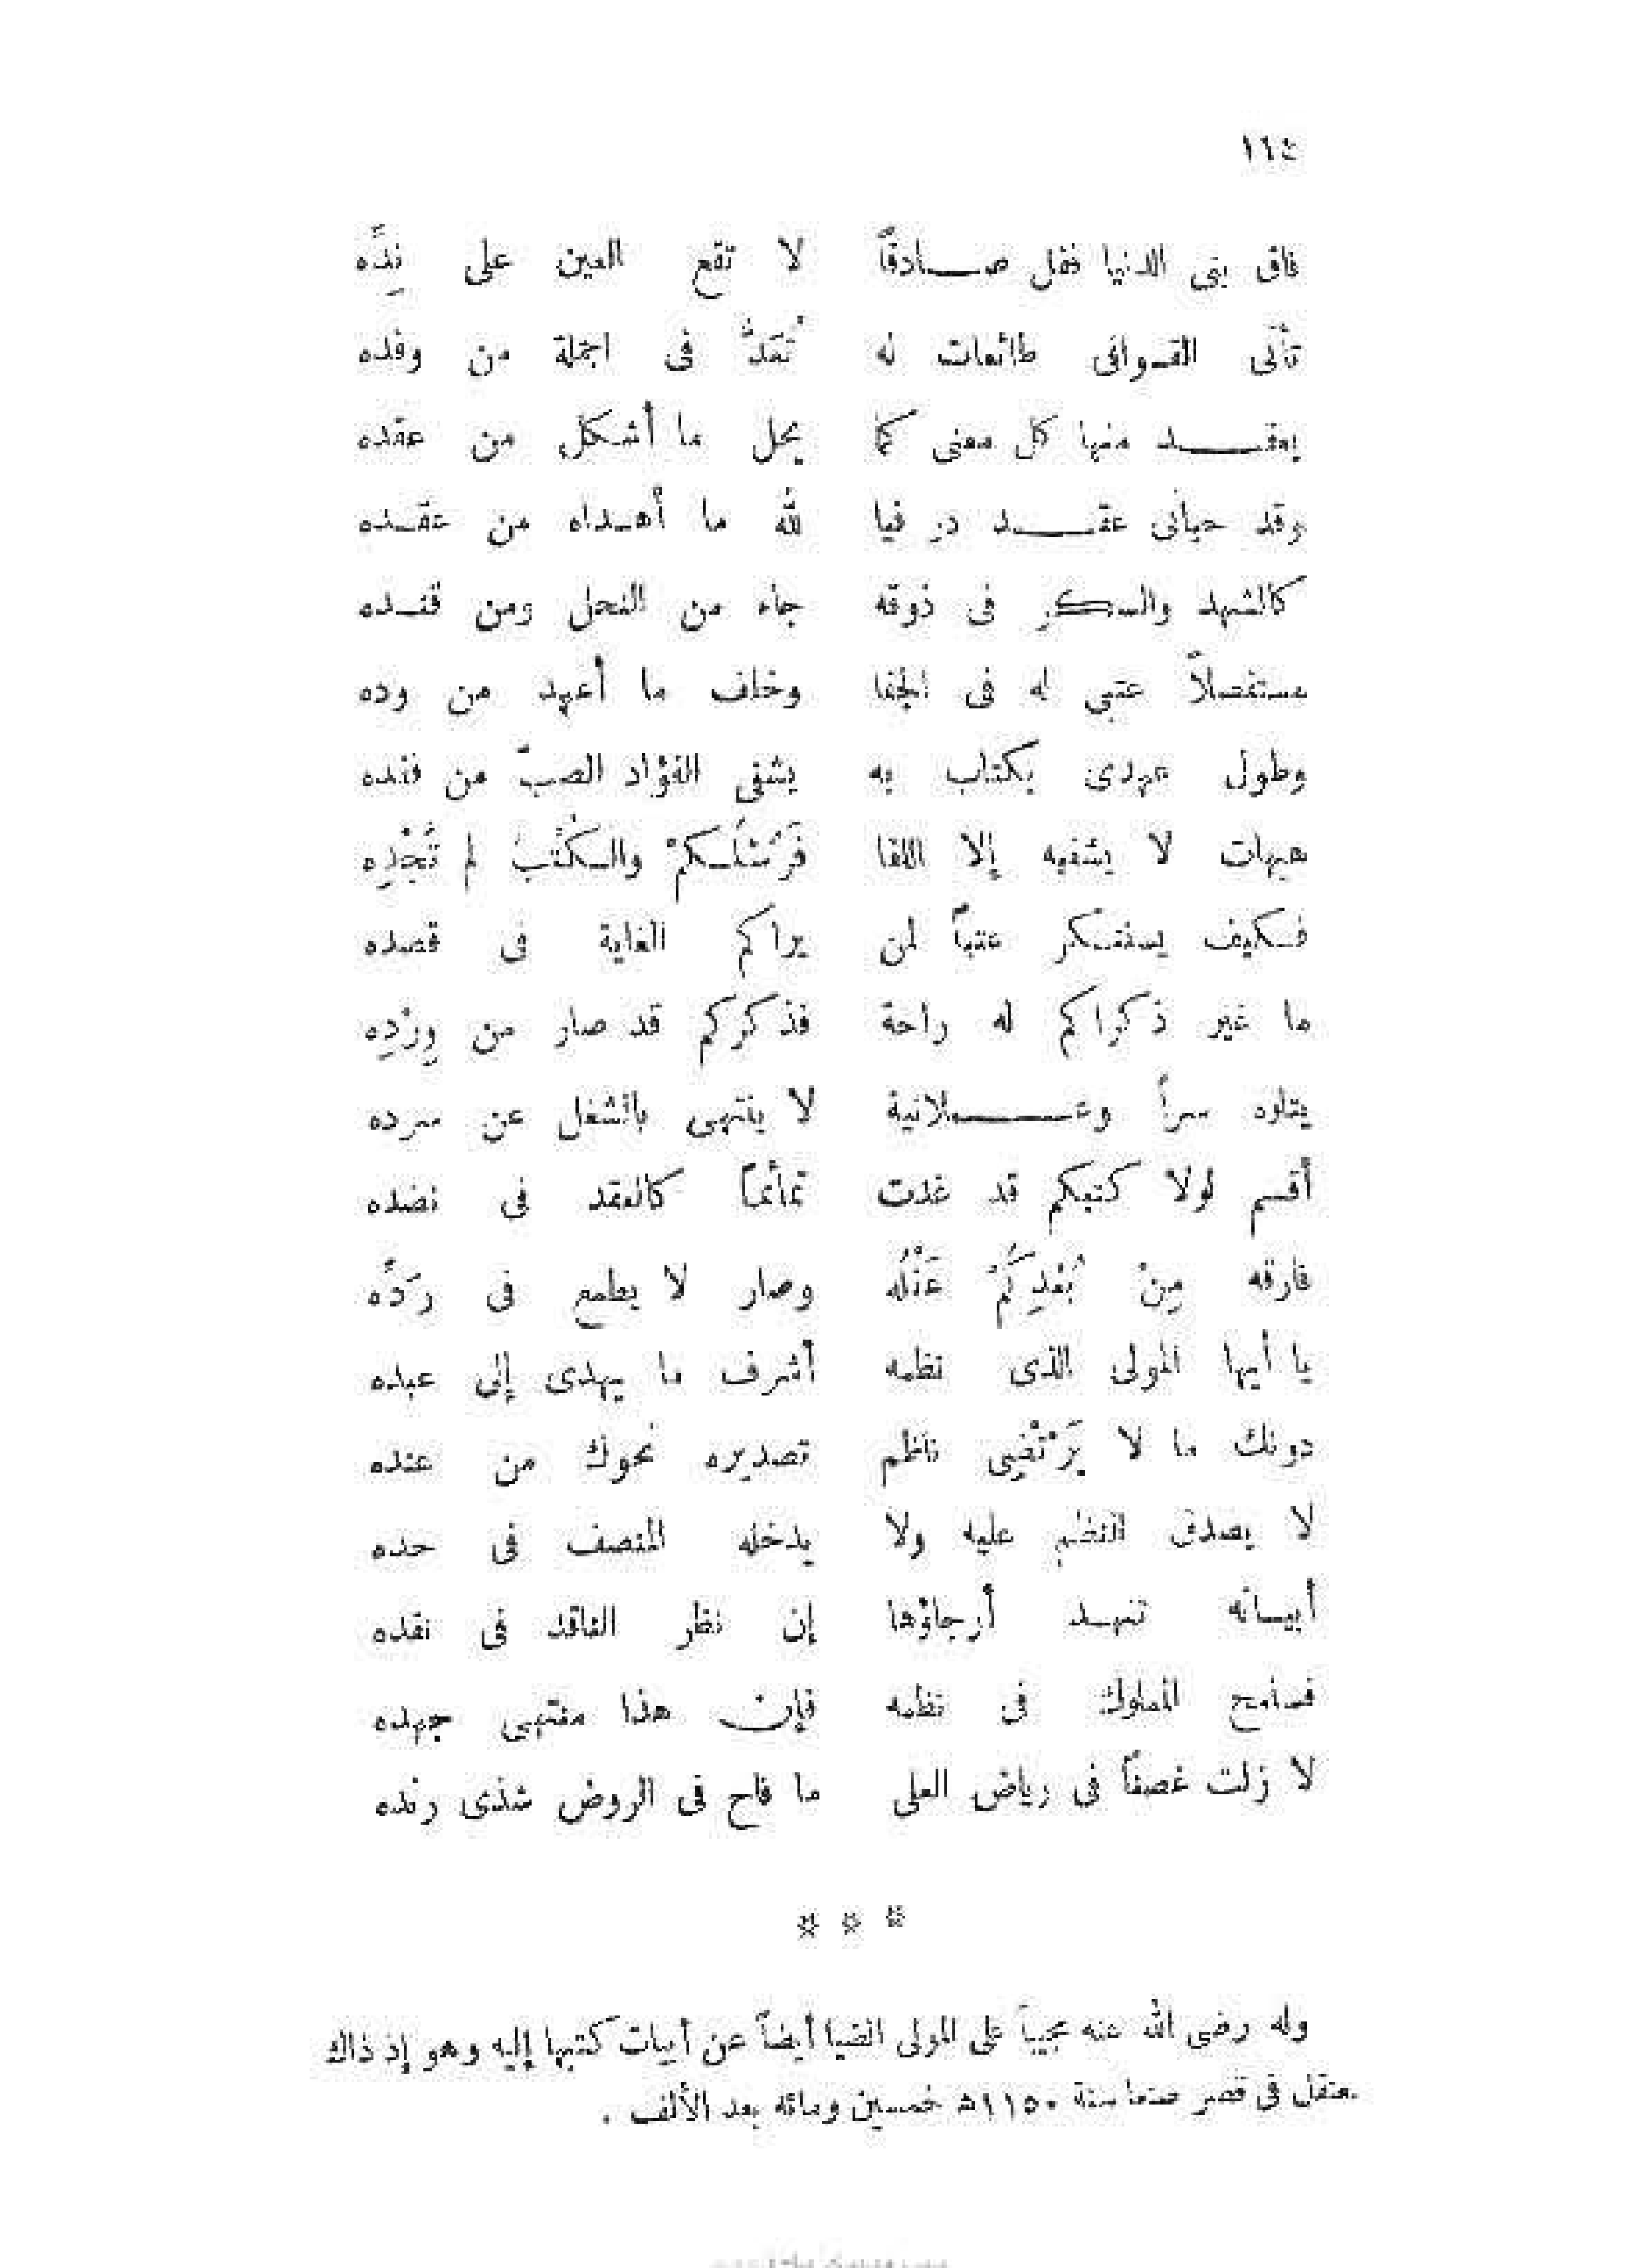 ١٦٤
فاق بنى الدنيا فقل صـادقاً لا تقع العين على نِدِّه
تأتى القـوافى طائعات له تُعَدُّ فى الجملة من وفده
يعقـد منها كل معنى كما يحل ما أشكل من عقده
وقد حبانى عقـد در فيا لله ما أهـداه من عقـده
كالشهد والسكر فى ذوقه جاء من النحل ومن قنـده
مستفصلاً عتبى له فى الجفا وخلف ما أعهد من وده
وطول عهدى بكتاب به يشفى الفؤاد الصبّ من فقده
هيهات لا يشفيه إلا اللقا فَرُسْلُـكمْ والـكُتْبُ لم تُجْدِه
فـكيف يستنـكر عتباً لمن يراكم الغاية فى قصده
ما غير ذكراكم له راحة فذكركم قد صار من وِرْدِه
يتلوه سراً وعـلانية لا ينتهى بالشغل عن سرده
أقسم لولا كتبكم قد غدت تمائماً كالعقد فى نضده
فارقه مِنْ بُعْدِكُمْ عَقْلُه وصار لا يطمع فى رَدِّه
يا أيها المولى الذى نظمه أشرف ما يهدى إلى عبده
دونك ما لا يَرْتَضِى ناظم تصديره نحوك من عنده
لا يصدق النظم عليه ولا يدخله المنصف فى حده
أبيـاته تنهـد أرجاؤها إن نظر الناقد فى نقده
فسامح المملوك فى نظمه فإن هذا منتهى جهده
لا زلت غصناً فى رياض العلى ما فاح فى الروض شذى رنده
* * *
وله رضى الله عنه مجيباً على المولى الضيا أيضاً عن أبيات كتبها إليه وهو إذ ذاك
معتقل فى قصر صنعا سنة ١١٥٠ﻫ خمسين ومائه بعد الألف .